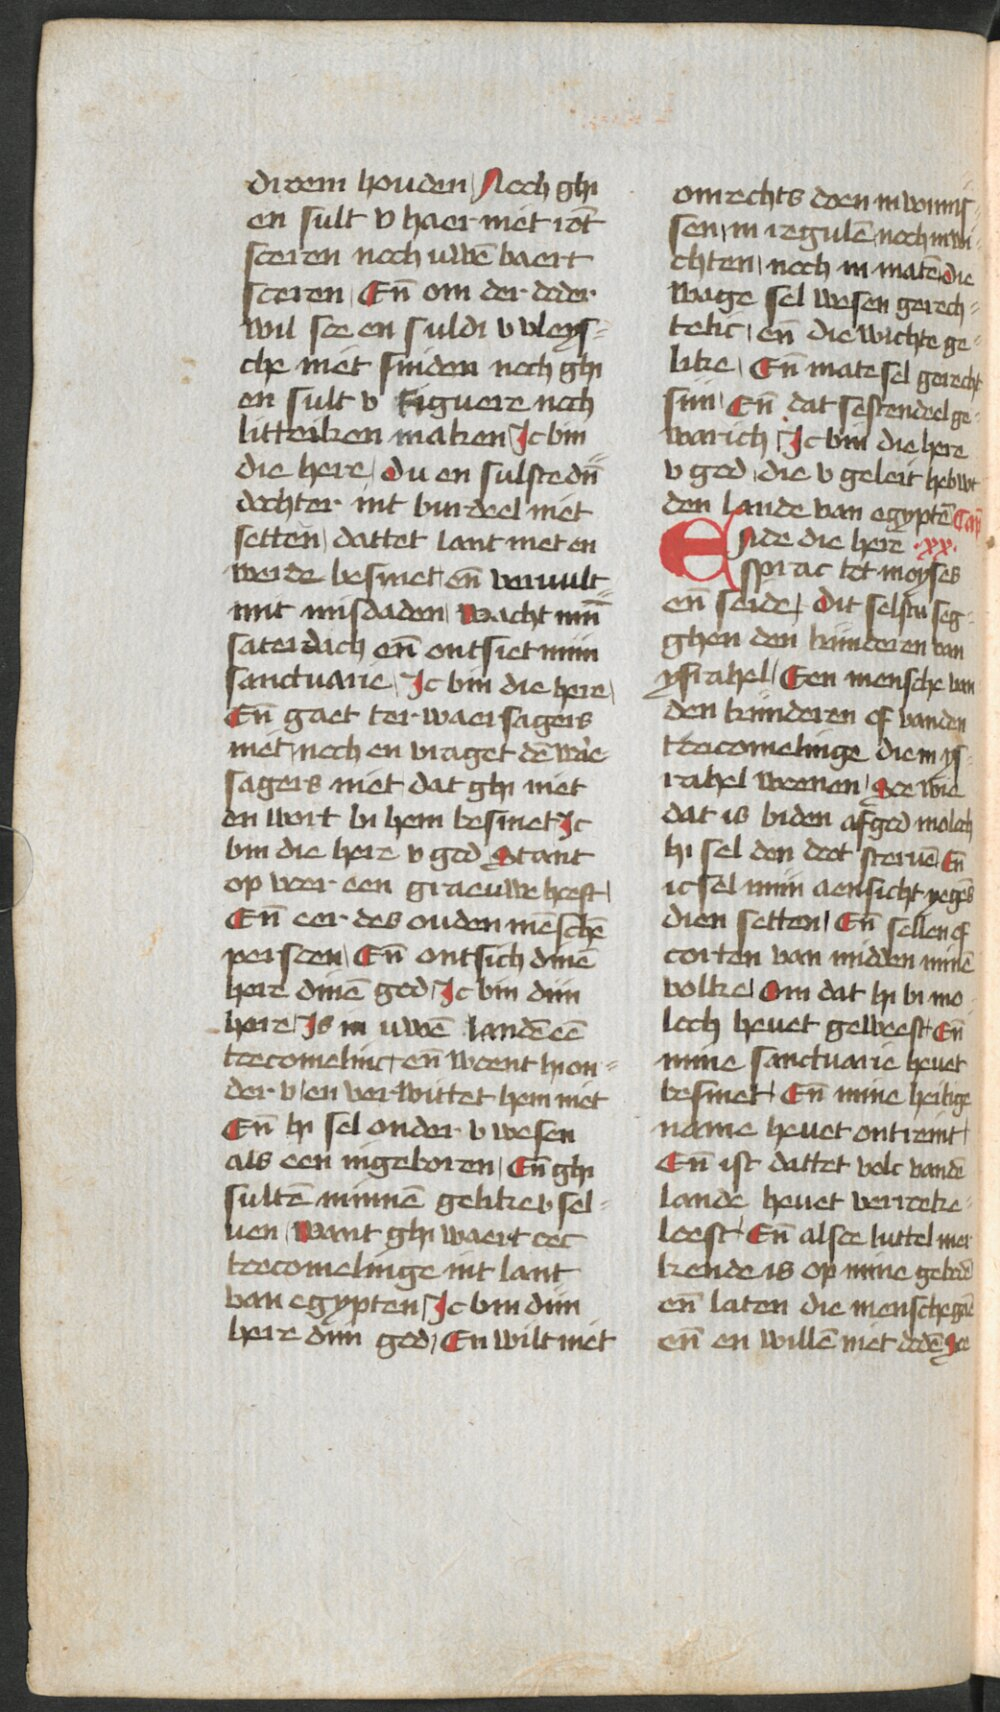 droem houden Noch ghi
en sult v haer niet rōt
sceren noch uwē baert
sceren Eñ om der doder
wil soe en suldi v vleys-
che niet sniden noch ghi
en sult v figuere noch
litteiken maken Ic bin
die here Du en sulste dijñ
dochter int burdeel niet
setten dattet lant niet en
werde besmet eñ vervult
mit misdaden Wacht mijñ
saterdach eñ ontsiet mijn
sanctuarie Ic bin die here
Eñ gaet ter waersagers
niet noch en vraget dē waer
sagers niet dat ghi niet
en wort bi hem besmet Ic
bin die here v god Stant
op voer een graeuwe hoeft
Eñ eer des ouden mēschē
persoen Eñ ontsich dinē
here dinē god Ic bin dijn
here Is in uwen landē eē
toecomelinc eñ woent hi on-
der v en verwittet hem niet
Eñ hi sel onder v wesen
als een ingeboren Eñ ghi
sultē minnē gelike v sel-
uen Want ghi waert oec
toecomelinge int lant
van egypten Ic bin dijn
here dijn god En wilt niet
onrechts doen in vonnis-
sen in regulē noch in wi-
chten noch in matē die
wage sel wesen gerech-
telic eñ die wichte ge-
like Eñ mate sel gerecht
sijn Eñ dat sestendeel ge-
warich Ic bin die here
v god die v geleit heb wt
den lande van egyptē Cap̄
Ende die here .xx.
sprac tot moyses
eñ seide Dit selstu seg-
ghen den kijnderen van
ysrahel Een mensche van
den kijnderen of vanden
toecomelinge die in ys-
rahel woenen Soe wie
dat is biden afgod moloch
hi sel den doot steruē Eñ
ic sel mijn aensicht yegēs
dien setten Eñ sellen of
corten van midden minē
volke Om dat hi bi mo
loch heuet geweest Eñ
mine sanctuarie heuet
besmet Eñ mine heilige
name heuet ontreint
Eñ ist dattet volc vandē
lande heuet verroeke-
loest Eñ alsoe luttel mer
kende is op mine gebode
eñ laten die mensche gaē
eñ en willē niet dodē Soe